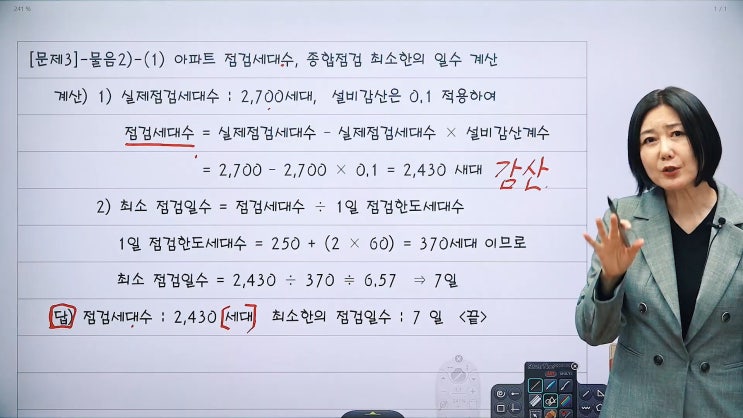 241 %
1 / 1
[문제3]-물음2)-(1) 아파트 점검세대수, 종합점검 최소한의 일수 계산
계산) 1) 실제점검세대수 : 2,700세대, 설비감산은 0.1 적용하여
점검세대수 = 실제점검세대수 - 실제점검세대수 × 설비감산계수
= 2,700 - 2,700 × 0.1 = 2,430 새대 감산
2) 최소 점검일수 = 점검세대수 ÷ 1일 점검한도세대수
1일 점검한도세대수 = 250 + (2 × 60) = 370세대 이므로
최소 점검일수 = 2,430 ÷ 370 ÷ 6.57 ⇒ 7일
답) 점검세대수 : 2,430 [세대] 최소한의 점검일수 : 7 일 <끝>